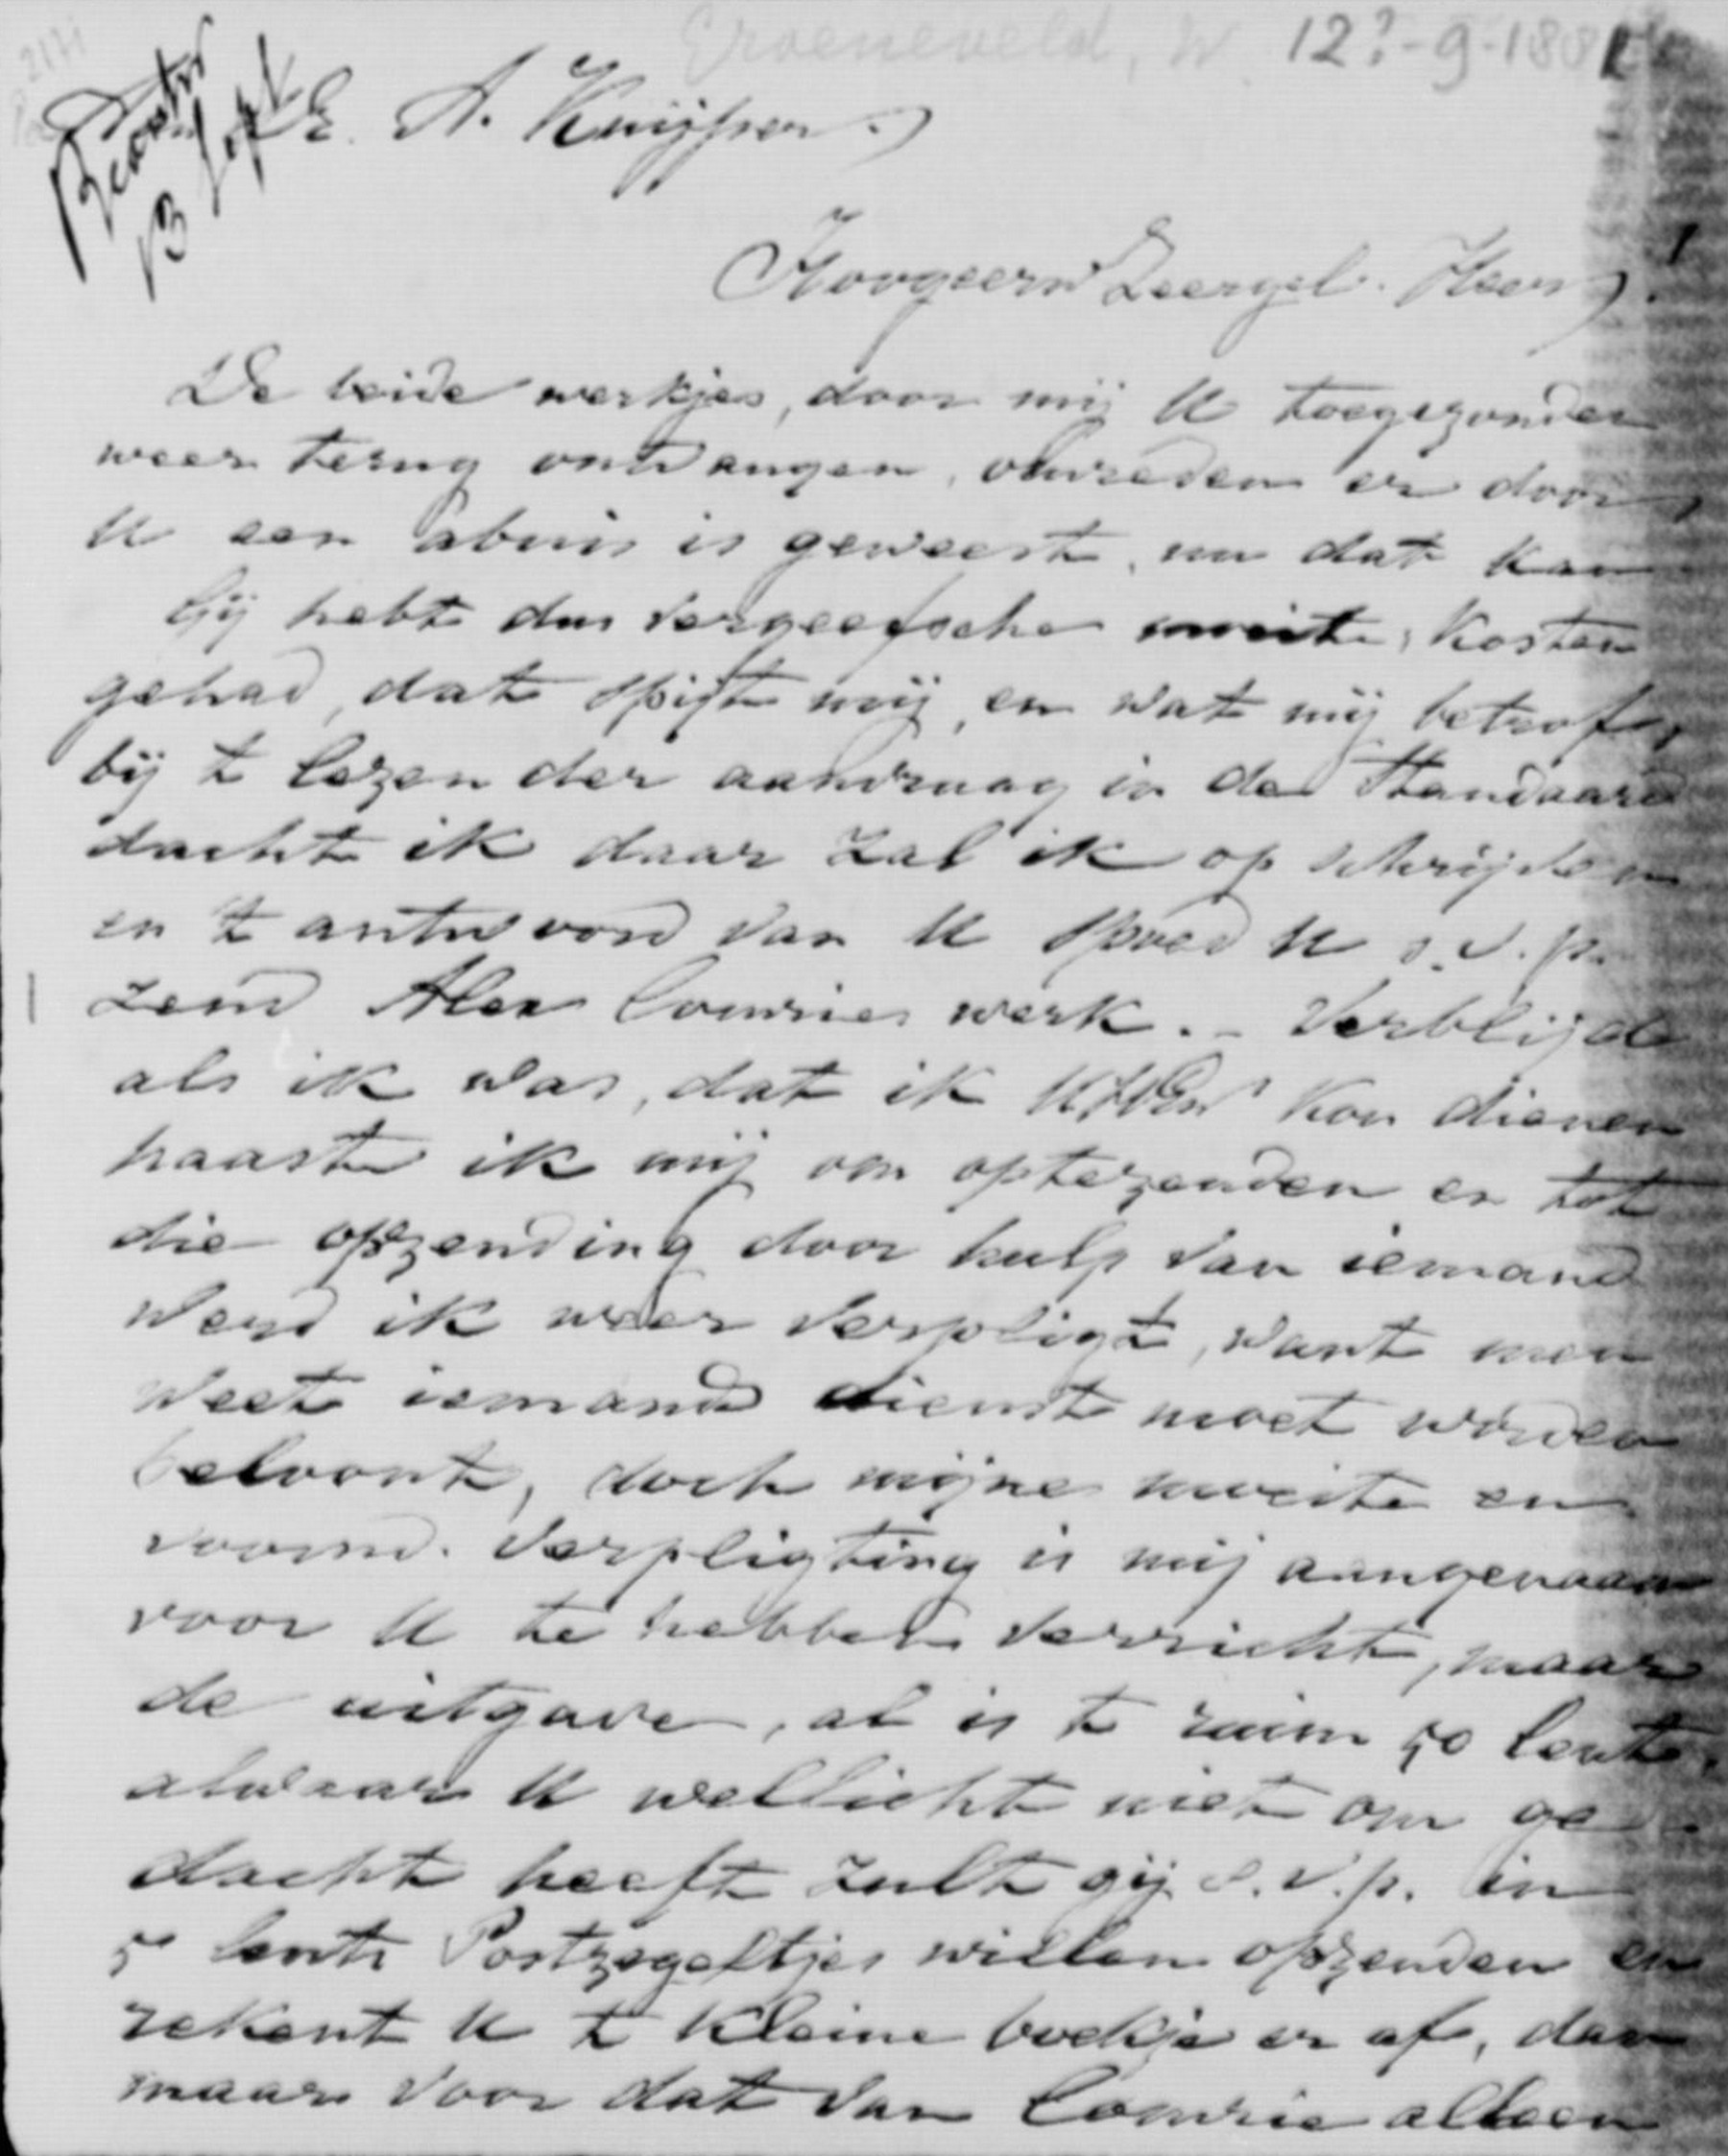 Groeneveld, W 12?-9-188
A. Kuijper
Hoogeerw Zeergel. Heer
De beide werkjes, door mij U toegezonden
weer terug ontvangen, omreden er door
U een abuis is geweest, nu dat kan
Gij hebt dus vergeefsche moeite, kosten
gehad, dat spijt mij, en wat mij betrof,
bij t lezen der aanvraag in de Standaard
dacht ik daar zal ik op schrijven
en t antwoord van U spoed U s.v.p.
zend Alex Comries werk. - Verblijd
als ik was, dat ik UWEw kon dienen
haaste ik mij om optezenden en tot
die opzending door hulp van iemand
werd ik weer verpligt, want men
weet iemands dienst moet worden
beloont, doch mijne moeite en
voorm. verpligting is mij aangenaam
voor U te hebben verricht, maar
de uitgave, al is t ruim 50 Cents,
alwaar U wellicht niet om ge
dacht heeft zult gij s.v.p. in
5 Cents Postzegeltjes willen opzenden en
rekent U t kleine boekje er af, dan
maar voor dat van Comrie alleen